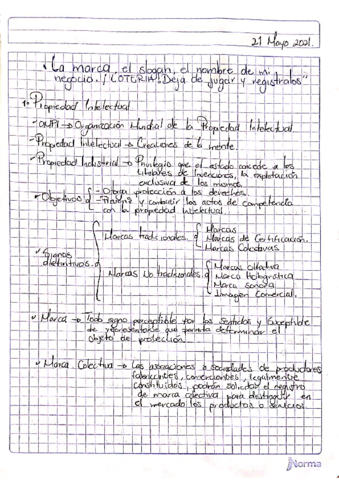 21 Mayo 2021.
"La marca, el slogan, el nombre de mi
negocio. ¡LOTERIA! Deja de jugar y regístralos"
1. Propiedad Intelectual
-OMPI → Organización Mundial de la Propiedad Intelectual.
-Propiedad Intelectual → Creaciones de la mente.
-Propiedad Industrial → Privilegio que el estado concede a los
titulares de invenciones, la explotación
exclusiva de los mismos.
-Objetivos
-Otorga protección a los derechos.
-Prevenir y combatir los actos de competencia
con la propiedad intelectual.
Signos
distintivos.
Marcas tradicionales.
Marcas
Marcas de Certificación.
Marcas Colectivas
Marcas No tradicionales.
Marca olfativa
Marca Holográfica
Marca Sonora
Imagen Comercial.
Marca → Todo signo perceptible por los sentidos y susceptible
de representarse que permita determinar el
objeto de protección.
Marca Colectiva → Las asociaciones o sociedades de productores
fabricantes, comerciantes, legalmente
constituidos, podrán solicitar el registro
de marca colectiva para distinguir en
el mercado los productos o servicios.
Norma